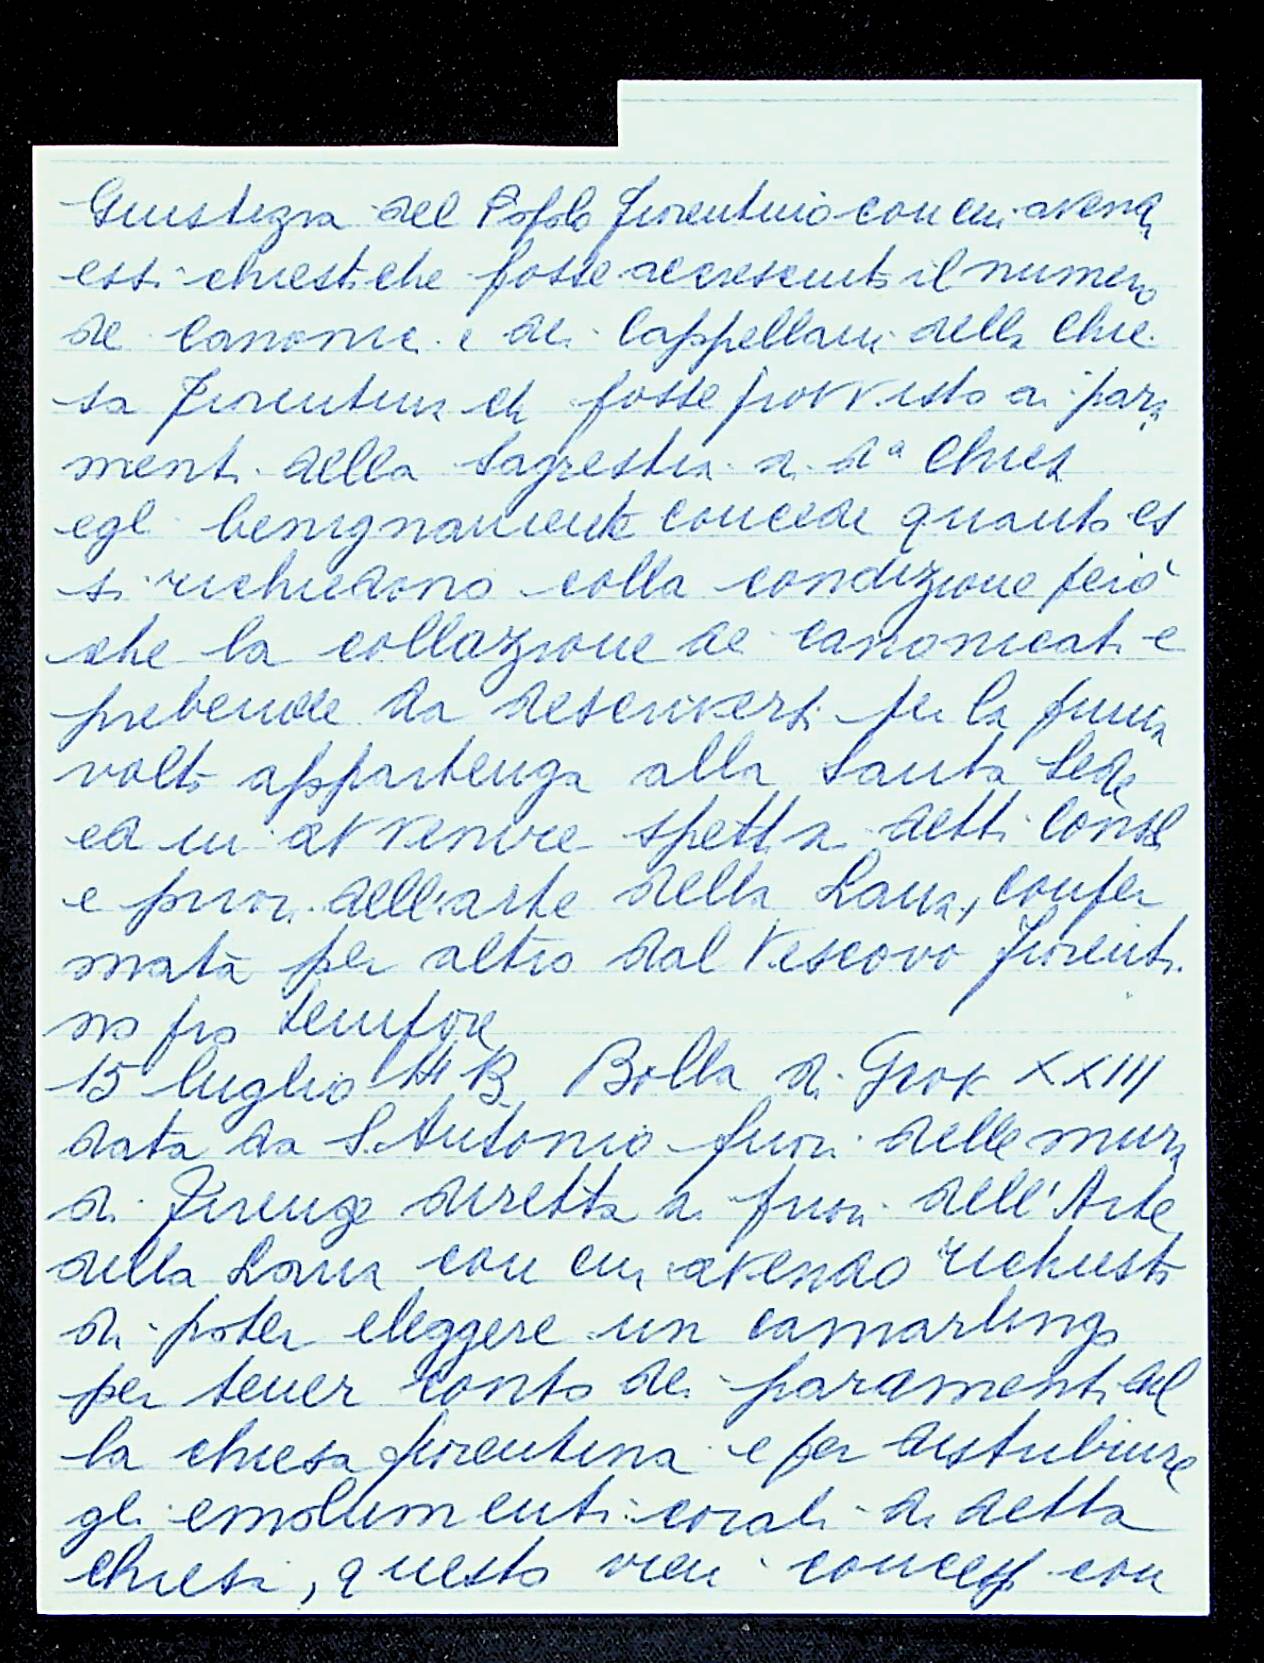 Giustizia del Popolo fiorentino con cui avend
essi chiesti che fosse accresciuto il numero
de canonici e dei Cappellani della Chie
sa fiorentina ch fosse provvisto ai para
menti della Sagrestia di da Chiesa
egli benignamente concede quanto es
si richiedono colla condizione però
che la collazione de canonicati e
prebende da descriversi per la prima
volta appartenga alla Santa Sede
ed in avvenire spetti a detti Consoli
e priori dell'arte della Lana, confer
mata per altro dal Vescovo fiorenti
no pro tempore
15 luglio 1413 Bolla di Giov XXIII
data da S. Antonio fuori delle mura
di Firenze diretta ai priori dell'Arte
della Lana con cui avendo richiesto
di poter eleggere un camarlingo
per tener conto dei paramenti del
la chiesa fiorentina e per distribuire
gli emolumenti corali di detta
chiesa, questo vien concesso con